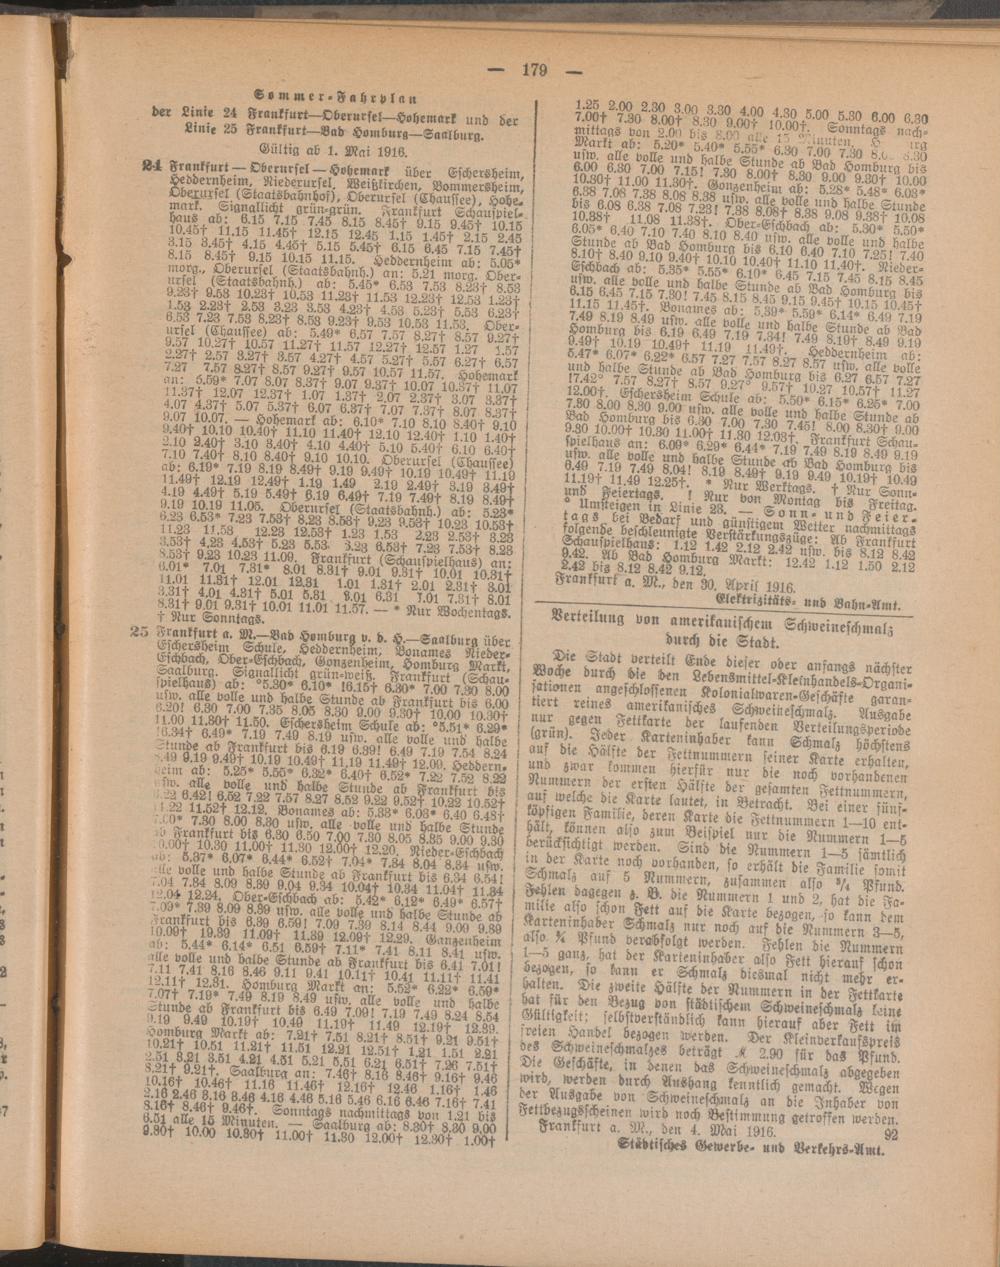 — 179 —
Sommer-Fahrplan
der Linie 24 Frankfurt—Oberursel—Hohemark und der
Linie 25 Frankfurt—Bad Homburg—Saalburg.
Gültig ab 1. Mai 1916.
24 Frankfurt — Oberursel — Hohemark über Eschersheim,
Heddernheim, Niederursel, Weißkirchen, Bommersheim,
Oberursel (Staatsbahnhof), Oberursel (Chaussee), Hohe-
mark. Signallicht grün-grün. Frankfurt Schauspiel-
haus ab: 6.15 7.15 7.45 8.15 8.45† 9.15 9.45† 10.15
10.45† 11.15 11.45† 12.15 12.45 1.15 1.45† 2.15 2.45
3.15 3.45† 4.15 4.45† 5.15 5.45† 6.15 6.45 7.15 7.45†
8.15 8.45† 9.15 10.15 11.15. Heddernheim ab: 5.05*
morg., Oberursel (Staatsbahnh.) an: 5.21 morg. Ober-
ursel (Staatsbahnh.) ab: 5.45* 6.53 7.53 8.23† 8.53
9.23† 9.53 10.23† 10.53 11.23† 11.53 12.23† 12.53 1.23†
1.53 2.23† 2.53 3.23 3.53 4.23† 4.53 5.23† 5.53 6.23†
6.53 7.23 7.53 8.23† 8.53 9.23† 9.53 10.53 11.53. Ober-
ursel (Chaussee) ab: 5.49* 6.57 7.57 8.27† 8.57 9.27†
9.57 10.27† 10.57 11.27† 11.57 12.27† 12.57 1.27 1.57
2.27† 2.57 3.27† 3.57 4.27† 4.57 5.27† 5.57 6.27† 6.57
7.27 7.57 8.27† 8.57 9.27† 9.57 10.57 11.57. Hohemark
an: 5.59* 7.07 8.07 8.37† 9.07 9.37† 10.07 10.37† 11.07
11.37† 12.07 12.37† 1.07 1.37† 2.07 2.37† 3.07 3.37†
4.07 4.37† 5.07 5.37† 6.07 6.37† 7.07 7.37† 8.07 8.37†
9.07 10.07. — Hohemark ab: 6.10* 7.10 8.10 8.40† 9.10
9.40† 10.10 10.40† 11.10 11.40† 12.10 12.40† 1.10 1.40†
2.10 2.40† 3.10 3.40† 4.10 4.40† 5.10 5.40† 6.10 6.40†
7.10 7.40† 8.10 8.40† 9.10 10.10. Oberursel (Chaussee)
ab: 6.19* 7.19 8.19 8.49† 9.19 9.49† 10.19 10.49† 11.19
11.49† 12.19 12.49† 1.19 1.49 2.19 2.49† 3.19 3.49†
4.19 4.49† 5.19 5.49† 6.19 6.49† 7.19 7.49† 8.19 8.49†
9.19 10.19 11.05. Oberursel (Staatsbahnh.) ab: 5.23*
6.23 6.53* 7.23 7.53† 8.23 8.53† 9.23 9.53† 10.23 10.53†
11.23 11.53 12.23 12.53† 1.23 1.53 2.23 2.53† 3.23
3.53† 4.23 4.53† 5.23 5.53 6.23 6.53† 7.23 7.53† 8.23
8.53† 9.23 10.23 11.09. Frankfurt (Schauspielhaus) an:
6.01* 7.01 7.31* 8.01 8.31† 9.01 9.31† 10.01 10.31†
11.01 11.31† 12.01 12.31 1.01 1.31† 2.01 2.31† 3.01
3.31† 4.01 4.31† 5.01 5.31 6.01 6.31 7.01 7.31† 8.01
8.31† 9.01 9.31† 10.01 11.01 11.57. — * Nur Wochentags.
† Nur Sonntags.
25 Frankfurt a. M.—Bad Homburg v. d. H.—Saalburg über
Eschersheim Schule, Heddernheim, Bonames Nieder-
Eschbach, Ober-Eschbach, Gonzenheim, Homburg Markt,
Saalburg. Signallicht grün-weiß. Frankfurt (Schau-
spielhaus) ab: °5.30* 6.10* !6.15† 6.30* 7.00 7.30 8.00
usw. alle volle und halbe Stunde ab Frankfurt bis 6.00
6.20! 6.30 7.00 7.35 8.05 8.30 9.00 9.30† 10.00 10.30†
11.00 11.30† 11.50. Eschersheim Schule ab: °5.51* 6.29*
!6.34† 6.49* 7.19 7.49 8.19 usw. alle volle und halbe
Stunde ab Frankfurt bis 6.19 6.39! 6.49 7.19 7.54 8.24
8.49 9.19 9.49† 10.19 10.49† 11.19 11.49† 12.09. Heddern-
heim ab: 5.25* 5.55* 6.32* 6.40† 6.52* 7.22 7.52 8.22
usw. alle volle und halbe Stunde ab Frankfurt bis
6.22 6.42! 6.52 7.22 7.57 8.27 8.52 9.22 9.52† 10.22 10.52†
11.22 11.52† 12.12. Bonames ab: 5.33* 6.03* 6.40 6.48†
7.00* 7.30 8.00 8.30 usw. alle volle und halbe Stunde
ab Frankfurt bis 6.30 6.50 7.00 7.30 8.05 8.35 9.00 9.30
10.00† 10.30 11.00† 11.30 12.00† 12.20. Nieder-Eschbach
ab: 5.37* 6.07* 6.44* 6.52† 7.04* 7.34 8.04 8.34 usw.
alle volle und halbe Stunde ab Frankfurt bis 6.34 6.54!
7.04 7.34 8.09 8.39 9.04 9.34 10.04† 10.34 11.04† 11.34
12.04 12.24. Ober-Eschbach ab: 5.42* 6.12* 6.49* 6.57†
7.09* 7.39 8.09 8.39 usw. alle volle und halbe Stunde ab
Frankfurt bis 6.39 6.59! 7.09 7.39 8.14 8.44 9.09 9.39
10.09† 10.39 11.09† 11.39 12.09† 12.29. Gonzenheim
ab: 5.44* 6.14* 6.51 6.59† 7.11* 7.41 8.11 8.41 usw.
alle volle und halbe Stunde ab Frankfurt bis 6.41 7.01!
7.11 7.41 8.16 8.46 9.11 9.41 10.11† 10.41 11.11† 11.41
12.11† 12.31. Homburg Markt an: 5.52* 6.22* 6.59*
7.07† 7.19* 7.49 8.19 8.49 usw. alle volle und halbe
Stunde ab Frankfurt bis 6.49 7.09! 7.19 7.49 8.24 8.54
9.19 9.49 10.19† 10.49 11.19† 11.49 12.19† 12.39.
Homburg Markt ab: 7.21† 7.51 8.21† 8.51† 9.21 9.51†
10.21† 10.51 11.21† 11.51 12.21 12.51† 1.21 1.51 2.21
2.51 3.21 3.51 4.21 4.51 5.21 5.51 6.21 6.51† 7.26 7.51†
8.21† 9.21†. Saalburg an: 7.46† 8.16 8.46† 9.16† 9.46
10.16† 10.46† 11.16 11.46† 12.16† 12.46 1.16† 1.46
2.16 2.46 3.16 3.46 4.16 4.46 5.16 5.46 6.16 6.46 7.16† 7.41
8.16† 8.46† 9.46†. Sonntags nachmittags von 1.21 bis
6.51 alle 15 Minuten. — Saalburg ab: 8.30† 8.30 9.00
9.30† 10.00 10.30† 11.00† 11.30 12.00† 12.30† 1.00†
1.25 2.00 2.30 3.00 3.30 4.00 4.30 5.00 5.30 6.00 6.30
7.00† 7.30 8.00† 8.30 9.00† 10.00†. Sonntags nach-
mittags von 2.00 bis 8.00 alle 15 Minuten.
Markt ab: 5.20* 5.40* 5.55* 6.30 7.00 7.30 8.30
usw. alle volle und halbe Stunde ab Bad Homburg bis
6.00 6.30 7.00 7.15! 7.30 8.00† 8.30 9.00 9.30† 10.00
10.30† 11.00 11.30†. Gonzenheim ab: 5.28* 5.48* 6.03*
6.38 7.08 7.38 8.08 8.38 usw. alle volle und halbe Stunde
bis 6.08 6.38 7.08 7.23! 7.38 8.08† 8.38 9.08 9.38† 10.08
10.38† 11.08 11.38†. Ober-Eschbach ab: 5.30* 5.50*
6.05* 6.40 7.10 7.40 8.10 8.40 usw. alle volle und halbe
Stunde ab Bad Homburg bis 6.10 6.40 7.10 7.25! 7.40
8.10† 8.40 9.10 9.40† 10.10 10.40† 11.10 11.40†. Nieder-
Eschbach ab: 5.35* 5.55* 6.10* 6.45 7.15 7.45 8.15 8.45
usw. alle volle und halbe Stunde ab Bad Homburg bis
6.15 6.45 7.15 7.30! 7.45 8.15 8.45 9.15 9.45† 10.15 10.45†
11.15 11.45†. Bonames ab: 5.39* 5.59* 6.14* 6.49 7.19
7.49 8.19 8.49 usw. alle volle und halbe Stunde ab Bad
Homburg bis 6.19 6.49 7.19 7.34! 7.49 8.19† 8.49 9.19
9.49† 10.19 10.49† 11.19 11.49†. Heddernheim ab:
5.47* 6.07* 6.22* 6.57 7.27 7.57 8.27 8.57 usw. alle volle
und halbe Stunde ab Bad Homburg bis 6.27 6.57 7.27
!7.42° 7.57 8.27† 8.57 9.27° 9.57† 10.27 10.57† 11.27
12.00†. Eschersheim Schule ab: 5.50* 6.15* 6.25* 7.00
7.30 8.00 8.30 9.00 usw. alle volle und halbe Stunde ab
Bad Homburg bis 6.30 7.00 7.30 7.45! 8.00 8.30† 9.00
9.30 10.00† 10.30 11.00† 11.30 12.03†. Frankfurt Schau-
spielhaus an: 6.09* 6.29* 6.44* 7.19 7.49 8.19 8.49 9.19
usw. alle volle und halbe Stunde ab Bad Homburg bis
6.49 7.19 7.49 8.04! 8.19 8.49† 9.19 9.49 10.19† 10.49
11.19† 11.49 12.25†. * Nur Werktags. † Nur Sonn-
und Feiertags. ! Nur von Montag bis Freitag.
° Umsteigen in Linie 23. — Sonn- und Feier-
tags bei Bedarf und günstigem Wetter nachmittags
folgende beschleunigte Verstärkungszüge: Ab Frankfurt
Schauspielhaus: 1.12 1.42 2.12 2.42 usw. bis 8.12 8.42
9.42. Ab Bad Homburg Markt: 12.42 1.12 1.50 2.12
2.42 bis 8.12 8.42 9.12.
Frankfurt a. M., den 30. April 1916.
Elektrizitäts- und Bahn-Amt.
Verteilung von amerikanischem Schweineschmalz
durch die Stadt.
Die Stadt verteilt Ende dieser oder anfangs nächster
Woche durch die den Lebensmittel-Kleinhandels-Organi-
sationen angeschlossenen Kolonialwaren-Geschäfte garan-
tiert reines amerikanisches Schweineschmalz. Ausgabe
nur gegen Fettkarte der laufenden Verteilungsperiode
(grün). Jeder Karteninhaber kann Schmalz höchstens
auf die Hälfte der Fettnummern seiner Karte erhalten,
und zwar kommen hierfür nur die noch vorhandenen
Nummern der ersten Hälfte der gesamten Fettnummern,
auf welche die Karte lautet, in Betracht. Bei einer fünf-
köpfigen Familie, deren Karte die Fettnummern 1—10 ent-
hält, können also zum Beispiel nur die Nummern 1—5
berücksichtigt werden. Sind die Nummern 1—5 sämtlich
in der Karte noch vorhanden, so erhält die Familie somit
Schmalz auf 5 Nummern, zusammen also ⁵/₄ Pfund.
Fehlen dagegen z. B. die Nummern 1 und 2, hat die Fa-
milie also schon Fett auf die Karte bezogen, so kann dem
Karteninhaber Schmalz nur noch auf die Nummern 3—5,
also ¾ Pfund verabfolgt werden. Fehlen die Nummern
1—5 ganz, hat der Karteninhaber also Fett hierauf schon
bezogen, so kann er Schmalz diesmal nicht mehr er-
halten. Die zweite Hälfte der Nummern in der Fettkarte
hat für den Bezug von städtischem Schweineschmalz keine
Gültigkeit; selbstverständlich kann hierauf aber Fett im
freien Handel bezogen werden. Der Kleinverkaufspreis
des Schweineschmalzes beträgt ℳ 2.90 für das Pfund.
Die Geschäfte, in denen das Schweineschmalz abgegeben
wird, werden durch Aushang kenntlich gemacht. Wegen
der Ausgabe von Schweineschmalz an die Inhaber von
Fettbezugsscheinen wird noch Bestimmung getroffen werden.
Frankfurt a. M., den 4. Mai 1916. 92
Städtisches Gewerbe- und Verkehrs-Amt.